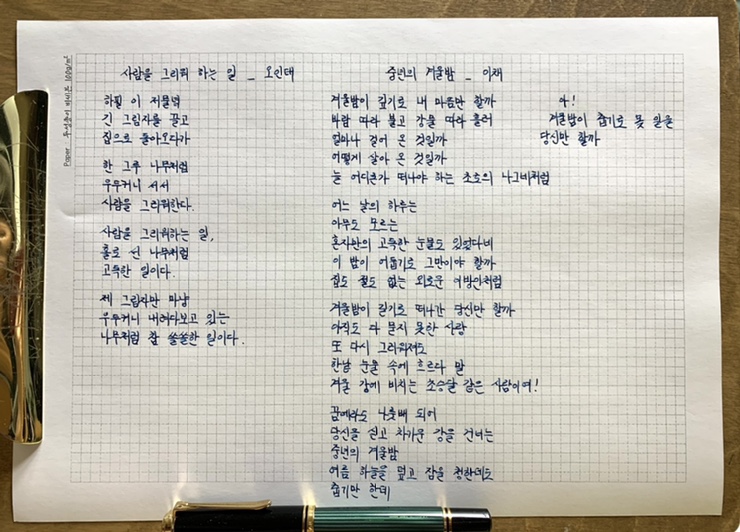 사람을 그리워 하는 일 _ 오인태
하필 이 저물녘
긴 그림자를 끌고
집으로 돌아오다가
한 그루 나무처럼
우두커니 서서
사람을 그리워한다.
사람을 그리워하는 일,
홀로 선 나무처럼
고독한 일이다.
제 그림자만 마냥
우두커니 내려다보고 있는
나무처럼 참 쓸쓸한 일이다.
중년의 겨울밤 _ 이채
겨울밤이 깊기로 내 마음만 할까
바람 따라 불고 강물 따라 흘러
얼마나 걸어 온 것일까
어떻게 살아 온 것일까
늘 어디론가 떠나야 하는 초로의 나그네처럼
어느 날의 하루는
아무도 모르는
혼자만의 고독한 눈물도 있었다네
이 밤이 어둡기로 그만이야 할까
집도 절도 없는 외로운 이방인처럼
겨울밤이 길기로 떠나간 당신만 할까
아직도 다 묻지 못한 사랑
또 다시 그리워져도
한낱 눈물 속에 흐르다 말
겨울 강에 비치는 초승달 같은 사람이여!
꿈에라도 나룻배 되어
당신을 싣고 차가운 강을 건너는
중년의 겨울밤
여름 하늘을 덮고 잠을 청한데도
춥기만 한데
아!
겨울밤이 춥기로 못 잊을
당신만 할까
Paper _ 두성종이 비세븐 100g/m²